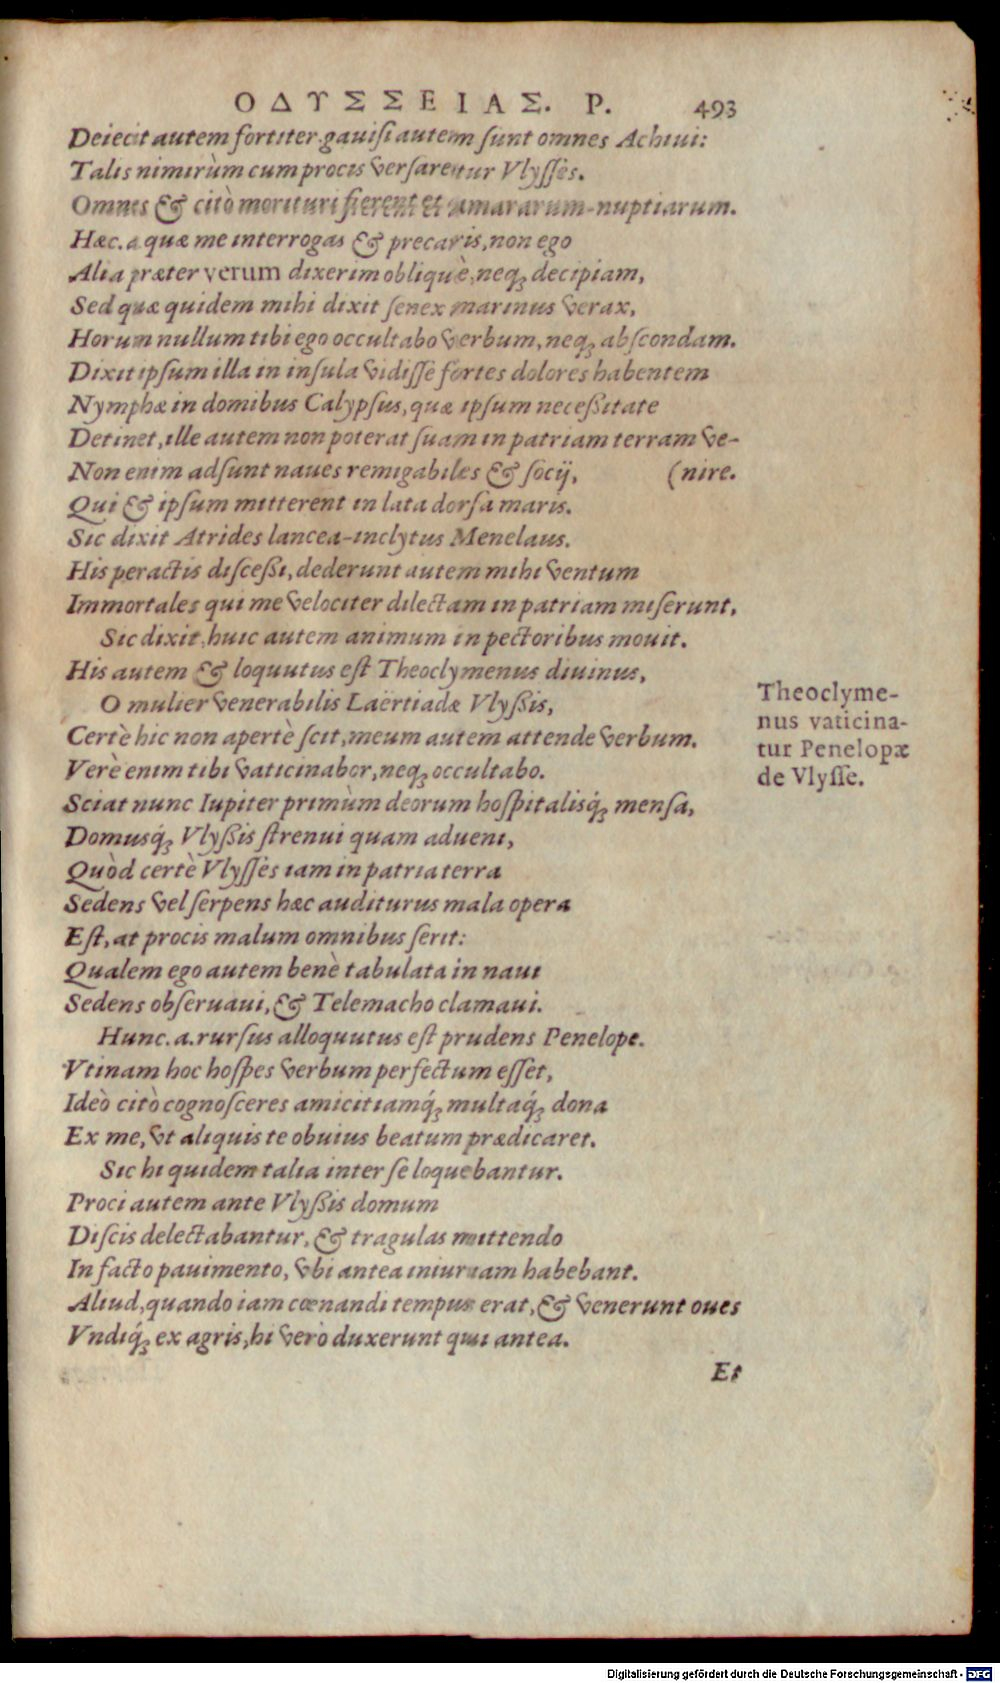 ΟΔΥΣΣΕΙΑΣ. Ρ. 493
Deiecit autem fortiter. gauisi autem sunt omnes Achiui:
Talis nimirùm cum procis versaretur Vlysses.
Omnes & citò morituri fierent et amararum-nuptiarum.
Hæc. a. quæ me interrogas & precaris, non ego
Alia præter verum dixerim obliquè, neq; decipiam,
Sed quæ quidem mihi dixit senex marinus verax,
Horum nullum tibi ego occultabo verbum, neq; abscondam.
Dixit ipsum illa in insula vidisse fortes dolores habentem
Nymphæ in domibus Calypsus, quæ ipsum necessitate
Detinet, ille autem non poterat suam in patriam terram ve-
Non enim adsunt naues remigabiles & socij, (nire.
Qui & ipsum mitterent in lata dorsa maris.
Sic dixit Atrides lancea-inclytus Menelaus.
His peractis discessi, dederunt autem mihi ventum
Immortales qui me velociter dilectam in patriam miserunt,
Sic dixit, huic autem animum in pectoribus mouit.
His autem & loquutus est Theoclymenus diuinus,
O mulier venerabilis Laërtiadæ Vlyssis,
Certè hic non apertè scit, meum autem attende verbum.
Verè enim tibi vaticinabor, neq; occultabo.
Sciat nunc Iupiter primùm deorum hospitalisq́; mensa,
Domusq́; Vlyssis strenui quam adueni,
Quòd certè Vlysses iam in patria terra
Sedens vel serpens hæc auditurus mala opera
Est, at procis malum omnibus serit:
Qualem ego autem benè tabulata in naui
Sedens obseruaui, & Telemacho clamaui.
Hunc. a. rursus alloquutus est prudens Penelope.
Vtinam hoc hospes verbum perfectum esset,
Ideò citò cognosceres amicitiamq́; multaq́; dona
Ex me, vt aliquis te obuius beatum prædicaret.
Sic hi quidem talia inter se loquebantur.
Proci autem ante Vlyssis domum
Discis delectabantur, & tragulas mittendo
In facto pauimento, vbi antea iniuriam habebant.
Aliud, quando iam cœnandi tempus erat, & venerunt oues
Vndiq́; ex agris, hi verò duxerunt qui antea.
Et
Theoclyme-
nus vaticina-
tur Penelopæ
de Vlysse.
Digitalisierung gefördert durch die Deutsche Forschungsgemeinschaft - DFG